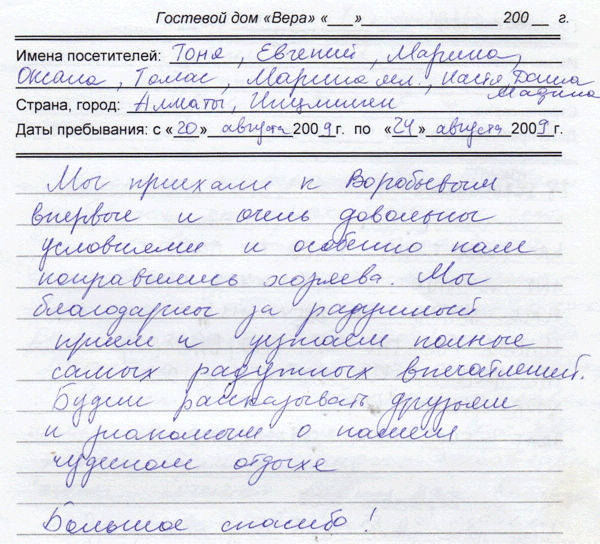 Гостевой дом «Вера» «___»____________________ 200__ г.
Имена посетителей: Тоня, Евгений, Марина,
Оксана, Томас, Марина мл., Настя, Даша
Мадина
Страна, город: Алматы,
Даты пребывания: с «20» августа 2009г. по «24» августа 2009г.
Мы приехали к Воробьевым
впервые и очень довольны
условиями и особенно нам
понравились хозяева. Мы
благодарны за радушный
прием и уезжаем полные
самых радужных впечатлений.
Будем рассказывать друзьям
и знакомым о нашем
чудесном отдыхе
Большое спасибо!